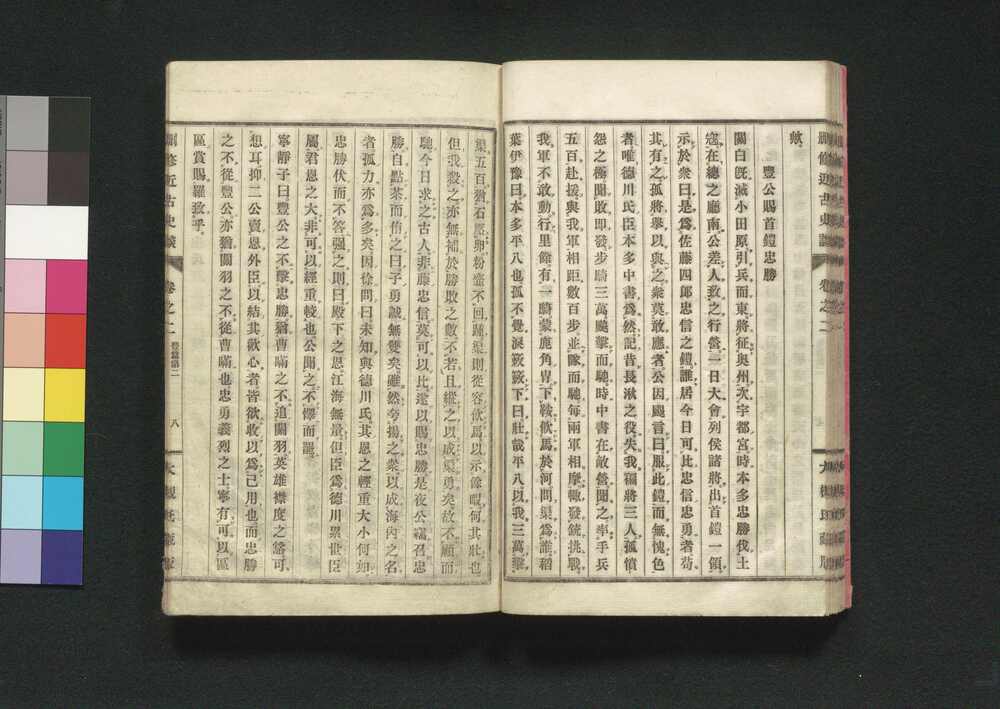 歟
豐公賜首鎧忠勝
關白既滅小田原引兵而東將征奧州次宇都宮時本多忠勝伐土
寇在總之廳南公差人致之行營一日大會列侯諸將出首鎧一領
示於衆曰是爲佐藤四郎忠信之鎧誰居今日可比忠信忠勇者苟
其有之孤將擧以與之衆莫敢應者公因颺言曰服此鎧而無愧色
者唯德川氏臣本多中書爲然記昔長湫之役失我驍將三人孤憤
怨之衝聞敗即發步騎三萬飈擊而馳時中書在敵營聞之率手兵
五百赴援與我軍相距數百步並隊而馳每兩軍相摩輙發銃挑戰
我軍不敢動行里餘有一騎蒙鹿角冑下鞍飲馬於河問渠爲誰稻
葉伊豫曰本多平八也孤不覺淚簌簌下曰壯哉平八以我三萬擊
渠五百猶石壓卵粉虀不回踵渠則從容飮馬以示餘暇何其壯也
但我殺之亦無補於勝敗之數不若且縱之以成渠勇矣故不顧而
馳今日求之古人非藤忠信莫可以比遂以賜忠勝是夜公竊召忠
勝自點茶而侑之曰子勇誠無雙矣雖然夸揚之衆以成海內之名
者孤力亦爲多矣因徐問曰未知與德川氏其恩之輕重大小何如
忠勝伏而不答强之則曰殿下之恩江海無量但臣爲德川累世臣
屬君恩之大非可以經重較也公聞之不懌而罷
寧靜子曰豐公之不擊忠勝猶曹瞞之不追關羽英雄襟度之豁可
想耳抑二公賣恩外臣以結其歡心者皆欲收以爲己用也而忠勝
之不從豐公亦猶關羽之不從曹瞞也忠勇義烈之士寧有可以區
區賞賜羅致乎
刪修近古史談
卷之二
豐篇第二
八
大槻氏藏版